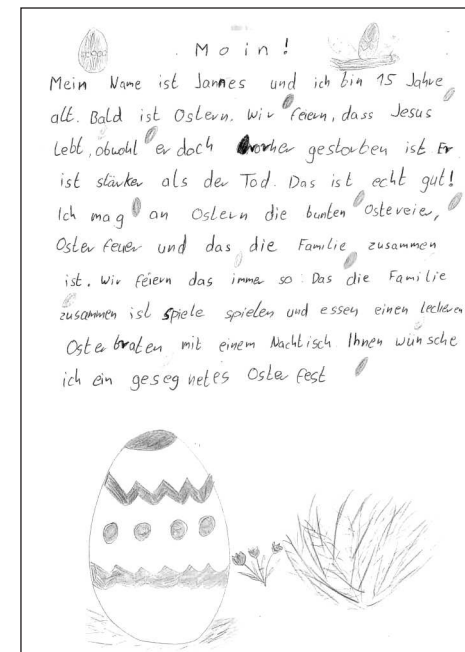 Moin!
Mein Name ist Jannes und ich bin 15 Jahre
alt. Bald ist Ostern. Wir feiern, dass Jesus
lebt, obwohl er doch vorher gestorben ist. Er
ist stärker als der Tod. Das ist echt gut!
Ich mag an Ostern die bunten Ostereier,
Osterfeuer und das die Familie zusammen
ist. Wir feiern das immer so: Das die Familie
zusammen ist spiele spielen und essen einen leckeren
Osterbraten mit einem Nachtisch Ihnen wünsche
ich ein gesegnetes Osterfest